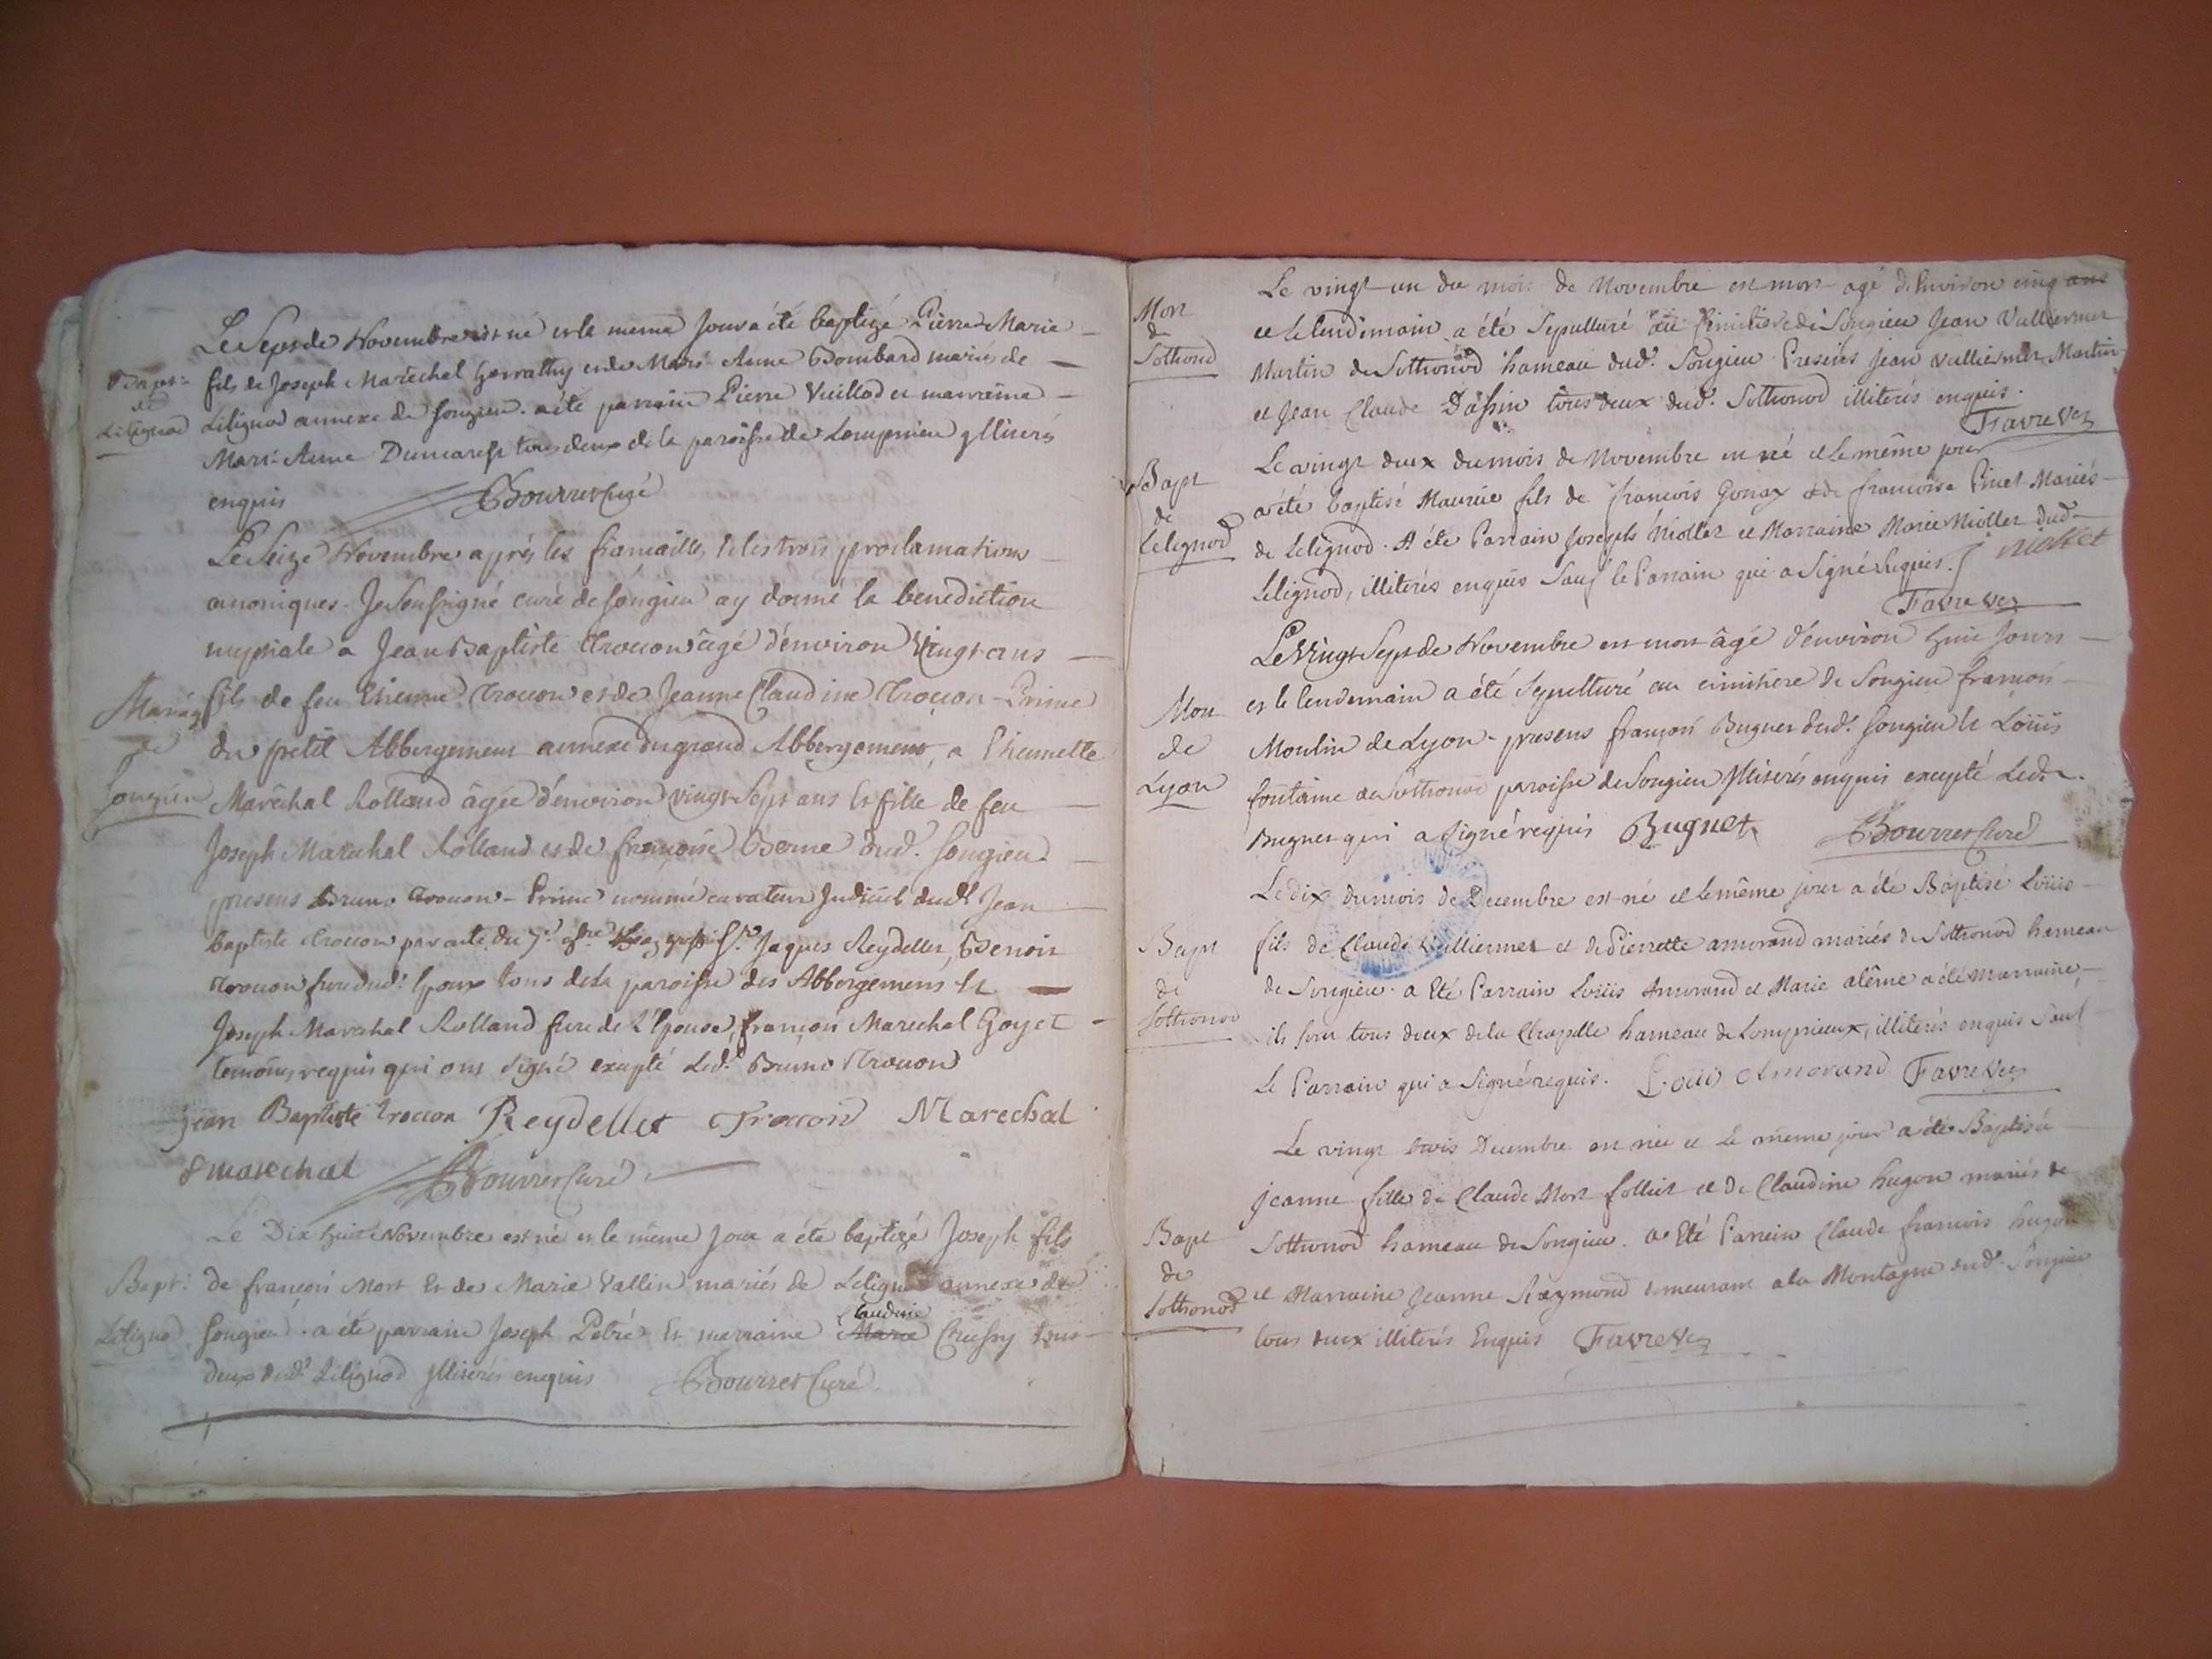 Le Sept de Novembre est né et le meme Jour a été baptizé Pierre Marie
Bapt: de Lilignod
fils de Joseph Maréchal Gerrathy et de Marie Anne Bombard mariés de
Lilignod annexe de Songieu. a été parrain Pierre Vuillod et marreine
Marie Anne Dumarest tous deux de la paroisse de Lompnieu yllitérés
enquis Bourret Curé
Le Seize Novembre après les fiancailles, et les trois proclamations
canoniques. Je Soussigné curé de Songieu ay donné la benediction
nuptiale a Jean Baptiste Trocon âgé d'environ Vingt ans
Mariag de Songieu
fils de feu Etienne Trocon et de Jeanne Claudine Trocon-Prime
du petit Abbergement annexe du grand Abbergement, a Thumette
Maréchal Rolland âgée d'environ vingt Sept ans Et fille de feu
Joseph Maréchal Rolland et de françoise Berne dud. Songieu
presens Bruno Trocon-Prime nommé curateur Judiciel dudt Jean
baptiste Trocon par acte du 7e 9bre Sr. Jaques Reydellet, Benoit
Trocon frere dudt Epoux tous de la paroisse des Abbergemens et
Joseph Marechal Rolland frere de L'Epouse, françois Marechal Goyet
temoins requis qui ont Signé excepté Ledt Bruno Trocon
jean Baptiste trocon Reydellet Trocon Marechal
marechal Bourret Curé
Le Dix huit Novembre est né et le même Jour a été baptizé Joseph fils
Bapt: Lilignod
de françois Mort Et de Marie Vallin mariés de Lilignod annexe de
Songieu. a été parrain Joseph Petré Et marraine Marie Claudine Crussy tous
deux dudt Lilignod yllitérés enquis Bourret Curé
Mort de Sothonod
Le vingt un du mois de Novembre est mort agé d'Environ cinq ans
et le lendemain a été Sepulturé au Cimitiere de Songieu Jean Vulliermet
Martin de Sothonod hameau dudt. Songieu Presens Jean Vulliermet Martin
et Jean Claude Dassin tous deux dudt. Sothonod illiterés enquis.
Favre Vic
Bapt de Lilignod
Le vingt deux du mois de Novembre est né et le même jour
a été baptisé Maurice fils de francois Gonax et de francoise Pinet Mariés
de Lilignod. A été Parrain Joseph Niollet et Marraine Marie Niollet dudt
Lilignod, illiterés enquis Sauf le Parrain qui a Signé Requis. niollet
Favre Vic
Le Vingt Sept de Novembre est mort âgé d'environ huit Jours
Mort de Lyon
et le lendemain a été Sepulturé au cimitiere de Songieu françois
Moulin de Lyon. presens françois Bugnet dudt. Songieu et Loüis
fontaine de Sothonod paroisse de Songieu yllitérés enquis excepté Ledt
Bugnet qui a Signé requis Bugnet Bourret Curé
Le dix du mois de Decembre est né et le même jour a été Baptisé Loüis
Bapt de Sothonod
fils de Claude Vulliermet et de Pierrette amorand mariés de Sothonod hameau
de Songieu. a Eté Parrain Loüis Amorand et Marie alême a été marraine,
ils sont tous deux de la Chapelle hameau de Lompnieux, illiterés enquis Sauf
Le Parrain qui a Signé requis. Loüis Amorand Favre Vic
Le vingt trois Decembre est née et Le même jour a été Baptisée
Bapt de Sothonod
Jeanne fille de Claude Mort follict et de Claudine hugon mariés de
Sothonod hameau de Songieu. a Eté Parrein Claude francois hugon
et Marraine Jeanne Raymond demeurant a la Montagne dudt. Songieu
tous deux illiterés Enquis Favre Vic